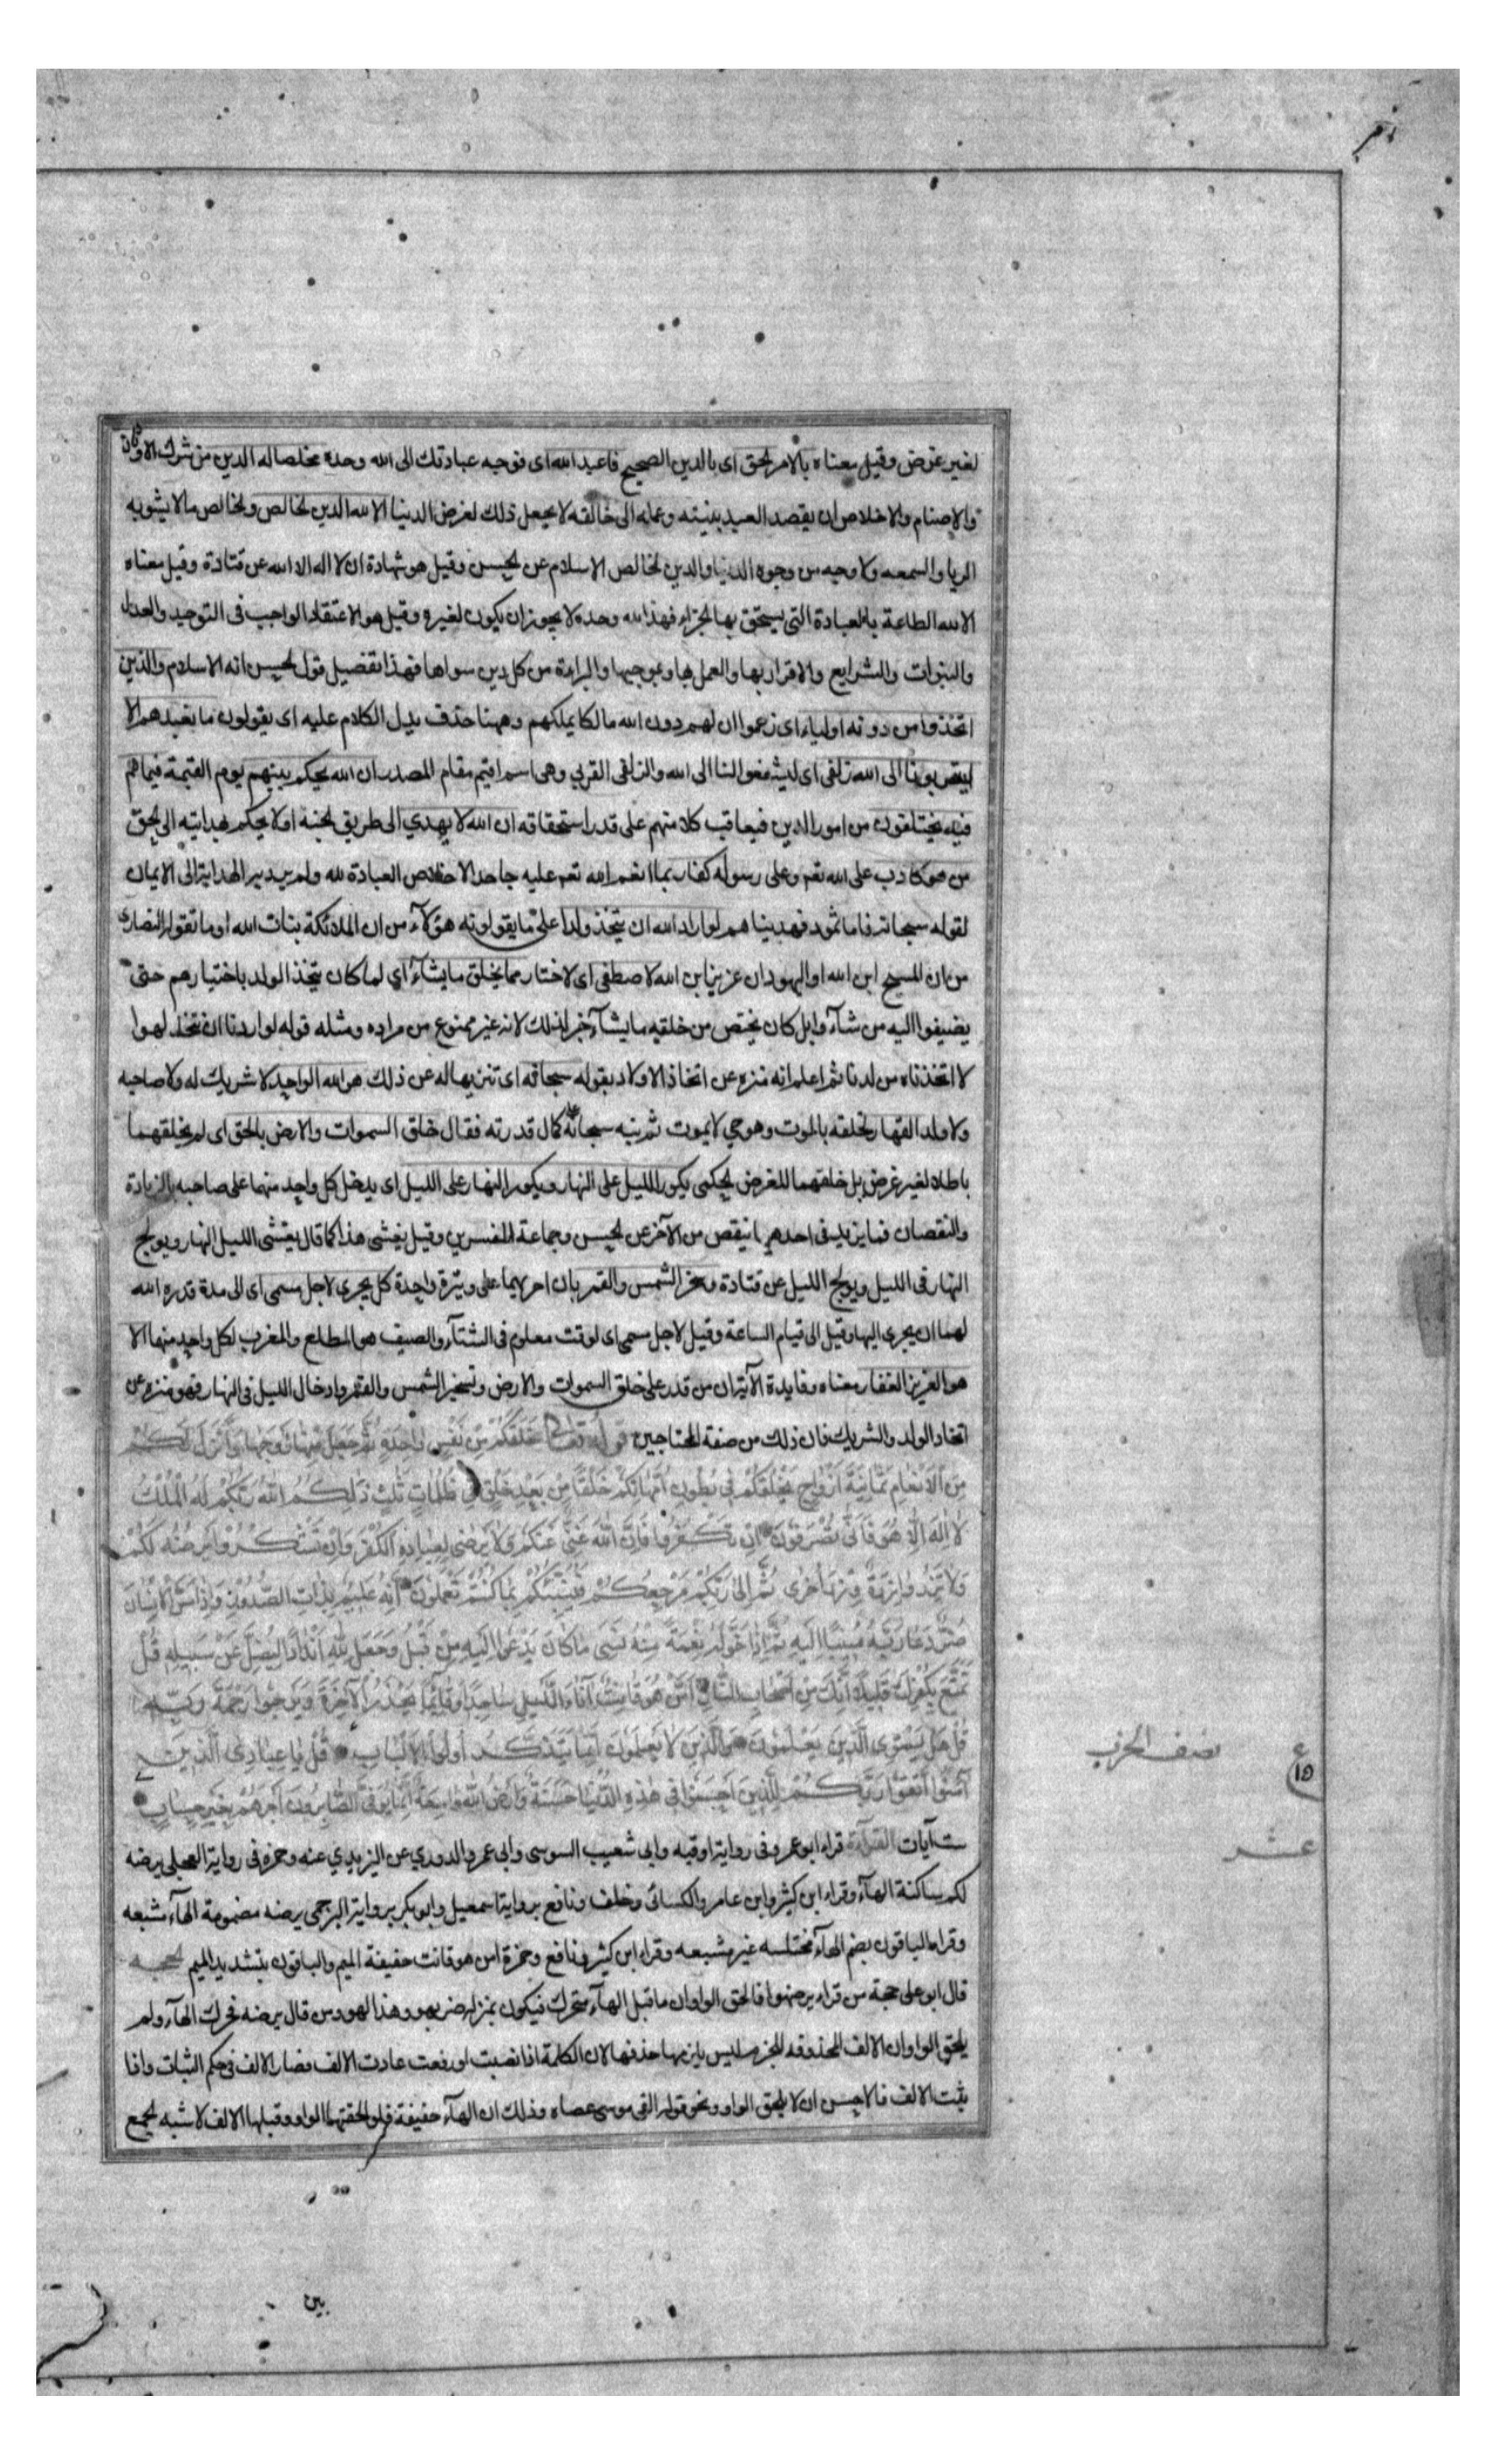 لغير غرض وقيل معناه بالامر الحق اى بالدين الصحيح فاعبد الله اى فوجه عبادتك الى الله وحده مخلصا له الدين من شرك الاوثان
والاصنام والاخلاص ان يقصد العبد بنيته وعمله الى خالقه لا يجعل ذلك لغرض الدنيا الا لله الدين الخالص والخالص ما لا يشوبه
الريا والسمعه ولا وجه من وجوه الدنيا والدين الخالص الاسلام عن الحسن وقيل هو شهادة ان لا اله الا الله عن قتادة وقيل معناه
الا لله الطاعة بالعبادة التى يستحق بها الجزاء فهذا لله وحده لا يجوز ان يكون لغيره وقيل هو الاعتقاد الواجب فى التوحيد والعدل
والنبوات والشرايع والاقرار بها والعمل بها وبموجبها والبراءة من كل دين سواها فهذا تفصيل قول الحسن انه الاسلام والذين
اتخذوا من دونه اولياء اى زعموا ان لهم دون الله مالكا يملكهم وههنا حذف يدل الكلام عليه اى يقولون ما نعبدهم الا
ليقربونا الى الله زلفى اى ليشفعوا لنا الى الله والزلفى القربي وهى اسم اقيم مقام المصدر ان الله يحكم بينهم يوم القيمة فيما هم
فيه يختلفون من امور الدين فيعاقب كلا منهم على قدر استحقاقه ان الله لا يهدي الى طريق الجنة او لا يحكم بهدايته الى الحق
من هو كاذب على الله تعم وعلى رسوله كفار بما انعم الله تعم عليه جاحد لاخلاص العبادة لله ولم يرد به الهداية الى الايمان
لقوله سبحانه فاما ثمود فهدينا هم لو اراد الله ان يتخذ ولدا على ما يقولونه هؤلآء من ان الملائكة بنات الله او ما تقوله النصارى
من ان المسيح ابن الله او اليهود ان عزير ابن الله لاصطفى اى لاختار مما يخلق ما يشآء اي لما كان يتخذ الولد باختيارهم حتى
يضيفوا اليه من شآء وا بل كان يختص من خلقه ما يشآء خبر لذلك لانه غير ممنوع من مراده ومثله قوله لو اردنا ان نتخذ لهوا
لاتخذناه من لدنا ثم اعلم انه منزه عن اتخاذ الاولاد بقوله سبحانه اى تنزيها له عن ذلك هو الله الواحد لا شريك له ولا صاحبه
ولا ولد القهار لخلقه بالموت وهو حي لا يموت ثم نبه سبحانه على كمال قدرته فقال خلق السموات والارض بالحق اى لم يخلقهما
باطلا لغير غرض بل خلقهما للغرض الحكمى يكور الليل على النهار ويكور النهار على الليل اى يدخل كل واحد منهما على صاحبه بالزيادة
والنقصان فما يزيد فى احدهما ينقص من الآخر عن الحسن وجماعة المفسرين وقيل يغشى هذا كما قال يغشى الليل النهار ويولج
النهار فى الليل ويولج الليل عن قتادة وسخر الشمس والقمر بان اجراهما على وتيرة واحدة كل يجرى لاجل مسمى اى الى مدة قدره الله
لهما ان يجرى اليها وقيل الى قيام الساعة وقيل لاجل مسمى اى لوقت معلوم فى الشتآء والصيف هو المطلع والمغرب لكل واحد منهما الا
هو العزيز الغفار معناه وفايدة الآية ان من قدر على خلق السموات والارض وتسخير الشمس والقمر وادخال الليل فى النهار فهو منزه عن
اتخاذ الولد والشريك فان ذلك من صفة المحتاجين قوله تعالى خَلَقَكُمْ مِنْ نَفْسٍ وَاحِدَةٍ ثُمَّ جَعَلَ مِنْهَا زَوْجَهَا وَأَنْزَلَ لَكُمْ
مِنَ الْأَنْعَامِ ثَمَانِيَةَ أَزْوَاجٍ يَخْلُقُكُمْ فِي بُطُونِ أُمَّهَاتِكُمْ خَلْقًا مِنْ بَعْدِ خَلْقٍ فِي ظُلُمَاتٍ ثَلٰثٍ ذَلِكُمُ اللهُ رَبُّكُمْ لَهُ الْمُلْكُ
لَا إِلَهَ إِلَّا هُوَ فَأَنَّى تُصْرَفُونَ إِنْ تَكْفُرُوا فَإِنَّ اللهَ غَنِيٌّ عَنْكُمْ وَلَا يَرْضَى لِعِبَادِهِ الْكُفْرَ وَإِنْ تَشْكُرُوا يَرْضَهُ لَكُمْ
وَلَا تَزِرُ وَازِرَةٌ وِزْرَ أُخْرَى ثُمَّ إِلَى رَبِّكُمْ مَرْجِعُكُمْ فَيُنَبِّئُكُمْ بِمَا كُنْتُمْ تَعْمَلُونَ إِنَّهُ عَلِيمٌ بِذَاتِ الصُّدُورِ وَإِذَا مَسَّ الْإِنْسَانَ
ضُرٌّ دَعَا رَبَّهُ مُنِيبًا إِلَيْهِ ثُمَّ إِذَا خَوَّلَهُ نِعْمَةً مِنْهُ نَسِيَ مَا كَانَ يَدْعُوا إِلَيْهِ مِنْ قَبْلُ وَجَعَلَ لِلّٰهِ أَنْدَادًا لِيُضِلَّ عَنْ سَبِيلِهِ قُلْ
تَمَتَّعْ بِكُفْرِكَ قَلِيلًا إِنَّكَ مِنْ أَصْحَابِ النَّارِ أَمَّنْ هُوَ قَانِتٌ آنَاءَ الَّيْلِ سَاجِدًا وَقَائِمًا يَحْذَرُ الْآخِرَةَ وَيَرْجُوا رَحْمَةَ رَبِّهِ
قُلْ هَلْ يَسْتَوِى الَّذِينَ يَعْلَمُونَ وَالَّذِينَ لَا يَعْلَمُونَ إِنَّمَا يَتَذَكَّرُ أُولُوا الْأَلْبَابِ قُلْ يَا عِبَادِى الَّذِينَ
آمَنُوا اتَّقُوا رَبَّكُمْ لِلَّذِينَ أَحْسَنُوا فِي هَذِهِ الدُّنْيَا حَسَنَةٌ وَأَرْضُ اللهِ وَاسِعَةٌ إِنَّمَا يُوَفَّى الصَّابِرُونَ أَجْرَهُمْ بِغَيْرِ حِسَابٍ
نصف الحزب
ع ١٥
ست آيات القرآءة قراء ابو عمرو فى رواية اوقيه وابى شعيب السوسى وابى عمر والدوري عن اليزيدي عنه وحمزه فى رواية العجلى يرضه
عشر
لكم ساكنة الهآء وقراء ابن كثير وابن عامر والكسائى وخلف ونافع برواية اسمعيل وابو بكر برواية البرجمى يرضه مضمومة الهآء مشبعه
وقراء الباقون بضم الهآء مختلسه غير مشبعه وقراء ابن كثير ونافع وحمزة امن هو قانت خفيفة الميم والباقون بتشديد الميم الحجه
قال ابو على حجة من قراء يرضهوا فالحق الواو ان ما قبل الهآء متحرك فيكون بمنزلة ضربهو وهذا لهو ومن قال يرضه فحرك الهآء ولم
يلحق الواو ان الالف المحذوفه للجزم ليس يلزمها حذفها لان الكلمة اذا نصبت او رفعت عادت الالف فصار الالف فى حكم الثبات واذا
يثبت الالف فالاحسن ان لا يلحق الواو ونحو قوله القى موسى عصاه وذلك ان الهآء خفيفة فلو الحقتها الواو وقبلها الالف لاشبه الجمع
بين